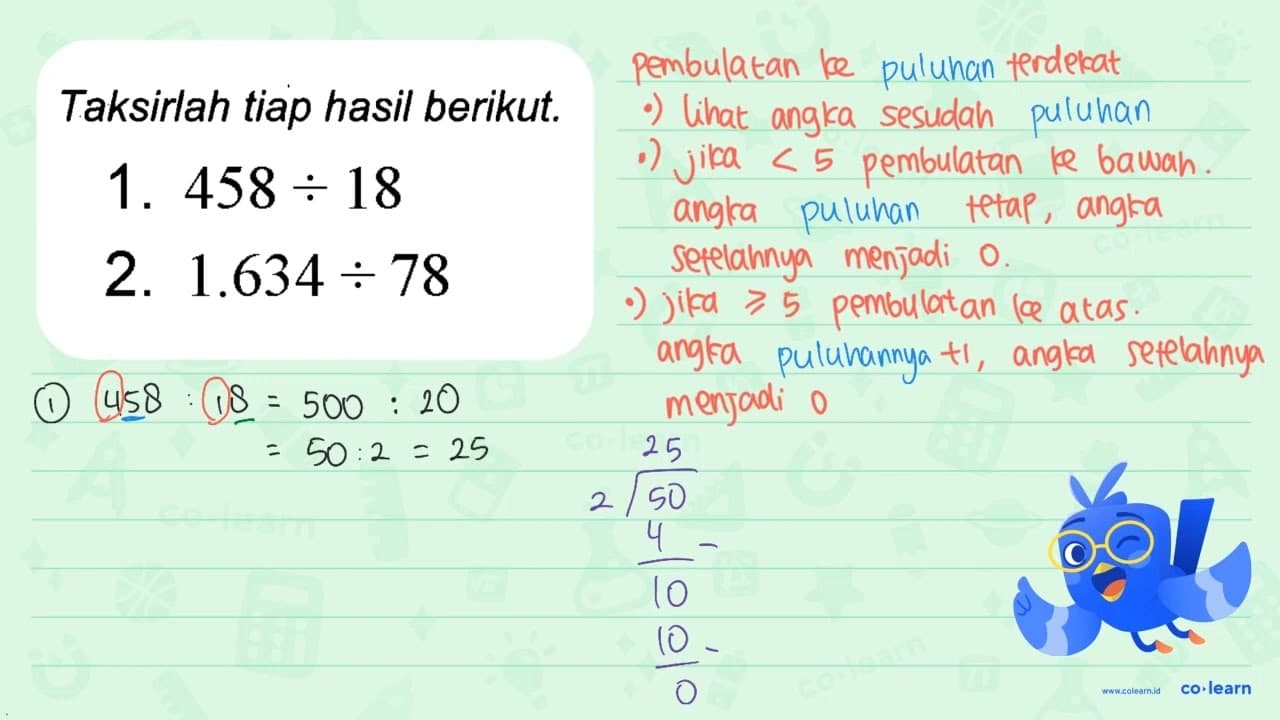 Taksirlah tiap hasil berikut.
1. 458 ÷ 18
2. 1.634 ÷ 78
pembulatan ke puluhan terdekat
•) lihat angka sesudah puluhan
•) jika < 5 pembulatan ke bawah.
angka puluhan tetap, angka
setelahnya menjadi 0.
•) jika ⩾ 5 pembulatan ke atas.
angka puluhannya +1, angka setelahnya
menjadi 0
① 458 : 18 = 500 : 20
= 50 : 2 = 25
25
2 50
4 -
10
10 -
0
co·learn
co·learn
co·learn
co·learn
www.colearn.id co·learn